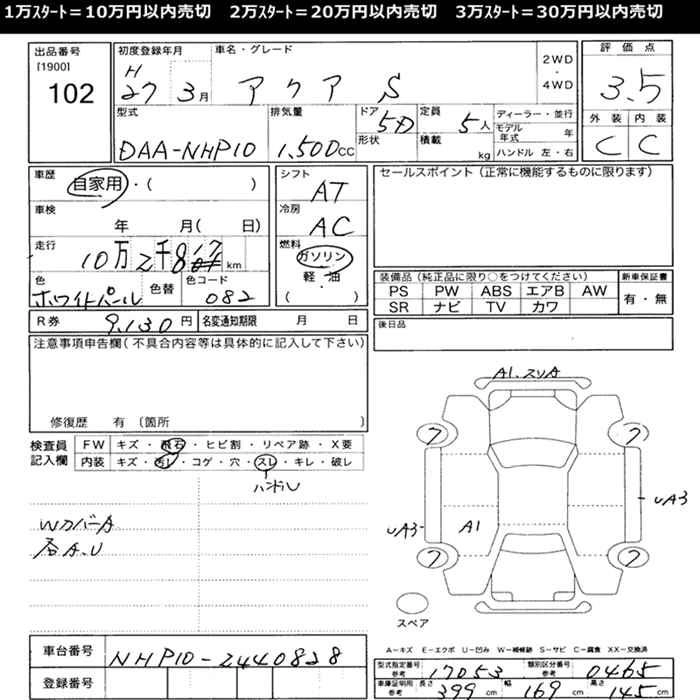 1万スタート＝10万円以内売切　2万スタート＝20万円以内売切　3万スタート＝30万円以内売切
出品番号
[1900]
102
初度登録年月
H
27 3月
車名・グレード
アクア S
2WD
・
4WD
評価点
3.5
外装 内装
C C
型式
DAA-NHP10
排気量
1.500cc
ドア 5D
形状
定員 5人
積載 kg
ディーラー・並行
モデル年式 年
ハンドル 左・右
車歴
自家用・( )
車検
年 月( 日)
走行
10万2千8 km
色
ホワイトパール
色替
色コード
082
シフト
AT
冷房
AC
燃料
ガソリン
軽・油
( )
R券 9,130円 名変通知期限 月 日
セールスポイント（正常に機能するものに限ります）
装備品（純正品に限り○をつけてください）
PS PW ABS エアB AW
SR ナビ TV カワ
新車保証書
有・無
後日品
注意事項申告欄（不具合内容等は具体的に記入して下さい）
修復歴 有（箇所 ）
検査員
記入欄
FW キズ・飛石・ヒビ割・リペア跡・X要
内装 キズ・汚レ・コゲ・穴・スレ・キレ・破レ
ハンドル
WカバーA
A.U
A1.スリA
ワ
ワ
UA3
UA3
A1
ワ
ワ
スペア
A－キズ E－エクボ U－凹み W－補修跡 S－サビ C－腐食 XX－交換済
車台番号 NHP10-2440828
登録番号
型式指定番号
参考
17053
類別区分番号
参考
0465
車庫証明用
参考
長さ 399cm 幅 169cm 高さ 145cm